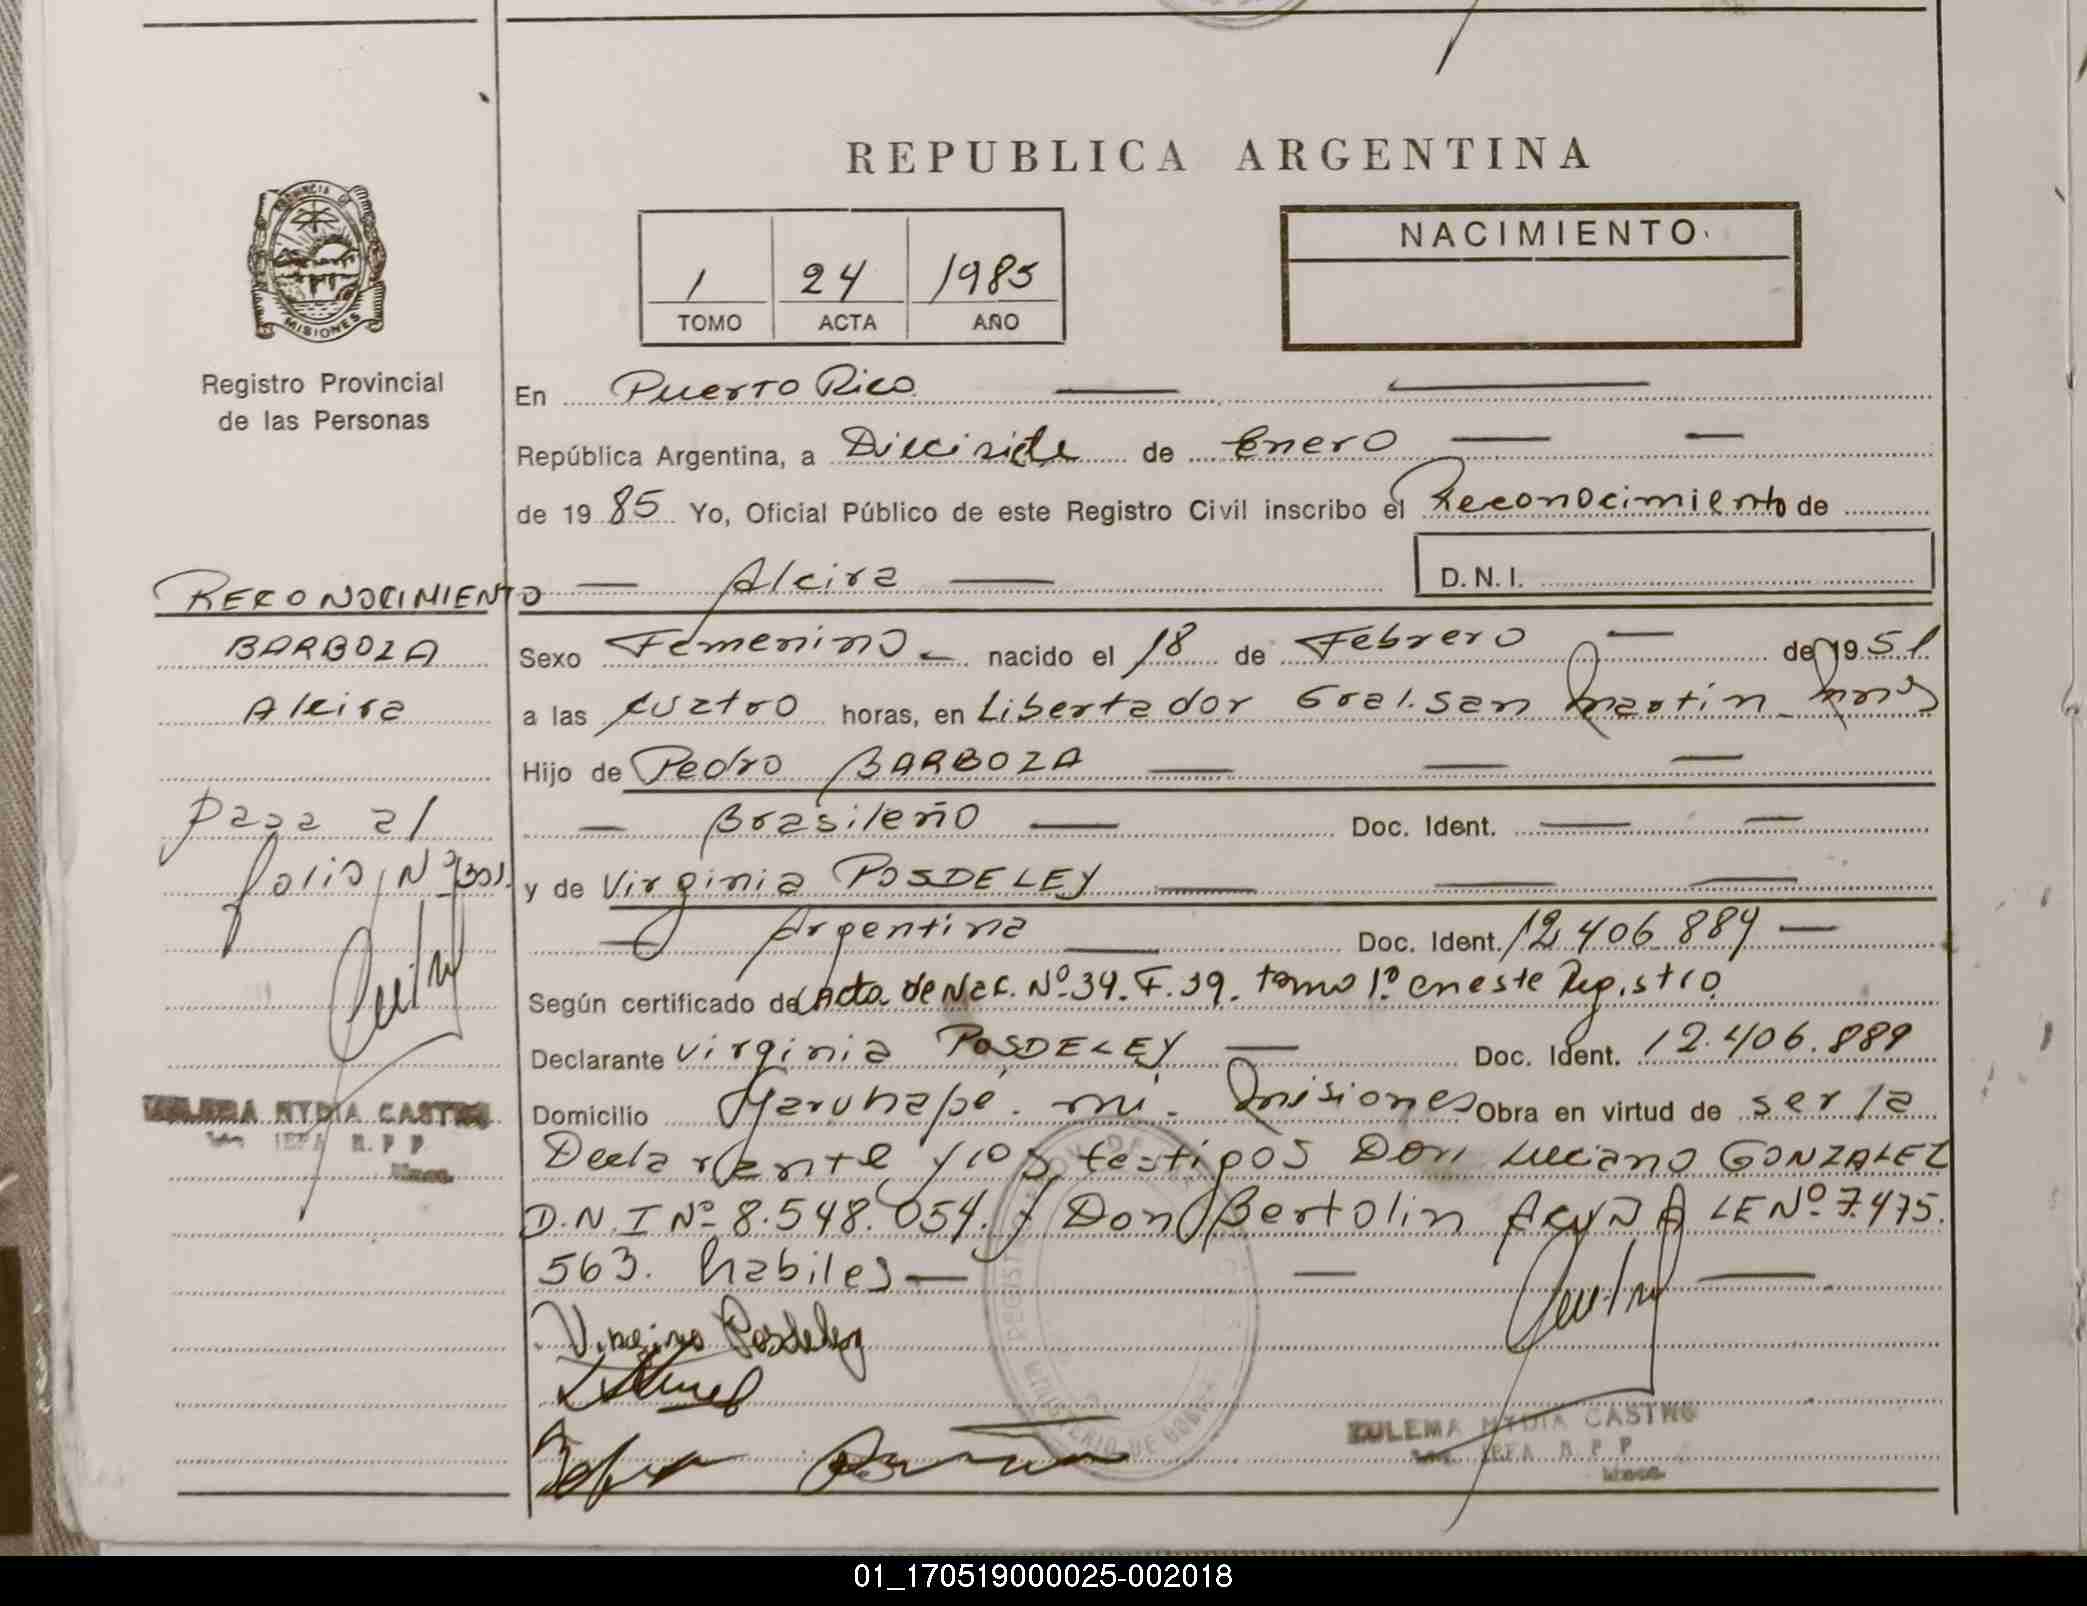 REPUBLICA ARGENTINA
PROVINCIA DE
MISIONES
Registro Provincial
de las Personas
1 24 1985
TOMO ACTA AÑO
NACIMIENTO
En Puerto Rico
República Argentina, a Diecisiete de Enero
de 1985 Yo, Oficial Público de este Registro Civil inscribo el Reconocimiento de
Alcira
D.N.I.
RECONOCIMIENTO
BARBOZA
Alcira
Pasa al
folio Nº 301.
Sexo Femenino nacido el 18 de Febrero de 1951
a las cuatro horas, en Libertador Gral. San Martin Mnes
Hijo de Pedro BARBOZA
Brasileño Doc. Ident.
y de Virginia POSDELEY
Argentina Doc. Ident. 12.406.889
Según certificado de Acta de Nac. Nº 39. F. 39. tomo 1º en este Registro
Declarante Virginia POSDELEY Doc. Ident. 12.406.889
Domicilio Garuhapé. mi. Misiones Obra en virtud de ser la
Declarante y los testigos Don Luciano GONZALEZ
D.N.I Nº 8.548.054. y Don Bertolin ACUÑA LE Nº 7.475.
563. habiles
Virginia Posdeley
ZULEMA NYDIA CASTRO
JEFA R. P. P.
ZULEMA NYDIA CASTRO
JEFA R. P. P.
MINISTERIO DE GOBIERNO
01_170519000025-002018